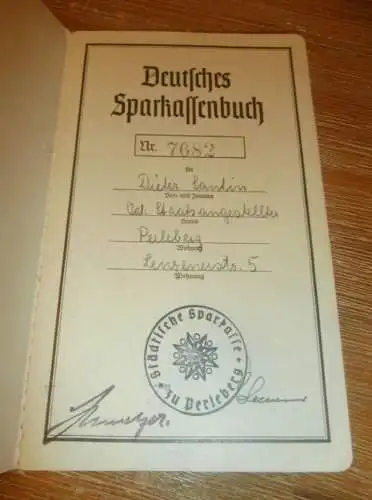 Deutsches
Sparkassenbuch
Nr. 7682
für
Dieter
Vor- und Zuname
Staatsangestellter
Stand
Perleberg
Wohnort
Lenzenerstr. 5
Wohnung
Städtische Sparkasse
zu Perleberg